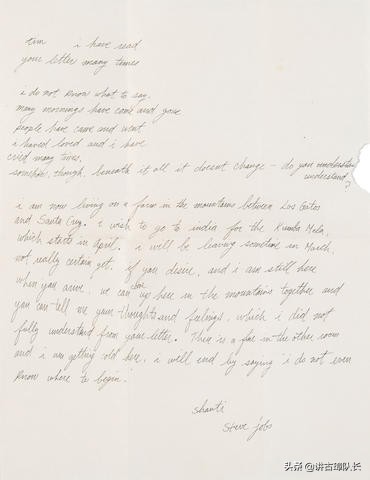 tim i have read
your letter many times
i do not know what to say.
many mornings have come and gone
people have came and went
i haved loved and i have
cried many times.
somehow, though, beneath it all it doesnt change – do you understand?
understand
i am now living on a farm in the mountains between Los Gatos
and Santa Cruz. i wish to go to india for the Kumba Mela,
which starts in april. i will be leaving sometime in March,
not really certain yet. if you desire, and i am still here
when you arive, we can be up here in the mountains together and
you can tell me your thoughts and feelings, which i did not
fully understand from your letter. There is a fire in the other room
and i am getting cold here. i will end by saying "i do not even
know where to begin."
shanti
steve jobs
头条 @讲古璋队长